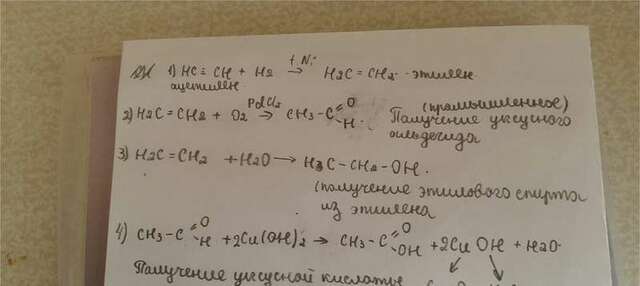 1) HC≡CH + H2 →(t, Ni) H2C=CH2 - этилен
ацетилен
2) H2C=CH2 + O2 →(PdCl2) CH3-C(=O)H. (промышленное)
Получение уксусного
альдегида
3) H2C=CH2 + H2O → H3C-CH2-OH.
(получение этилового спирта
из этилена
4) CH3-C(=O)H + 2Cu(OH)2 → CH3-C(=O)OH + 2CuOH + H2O
Получение уксусной кислоты